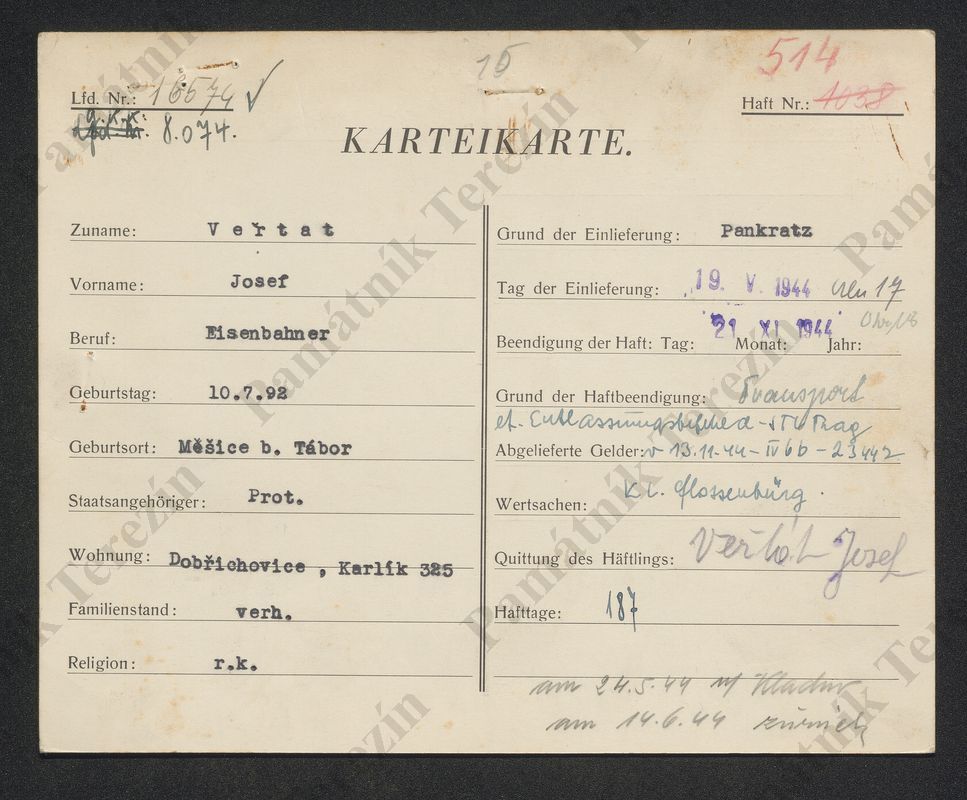 15
514
Lfd. Nr.: 16574
Haft Nr.: 1038
8.074.
KARTEIKARTE.
Zuname: Veřtat
Vorname: Josef
Beruf: Eisenbahner
Geburtstag: 10.7.92
Geburtsort: Měšice b. Tábor
Staatsangehöriger: Prot.
Wohnung: Dobřichovice , Karlík 325
Familienstand: verh.
Religion: r.k.
Grund der Einlieferung: Pankratz
Tag der Einlieferung: 19. V. 1944 17
Beendigung der Haft: Tag: Monat: Jahr: 21 XI 1944
Grund der Haftbeendigung: Transport
lt. Entlassungsbefehl d. STL Prag
Abgelieferte Gelder: v 13.11.44 - IV 6b - 23442
Wertsachen: KL. Flossenbürg.
Quittung des Häftlings: Veřtát Josef
Hafttage: 187
am 24.5.44 n/ Kladno
am 14.6.44 zurück
Památník Terezín